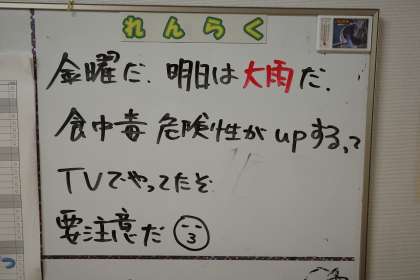 れんらく
金曜だ、明日は大雨だ、
食中毒危険性がupするって
TVでやってたぞ
要注意だ